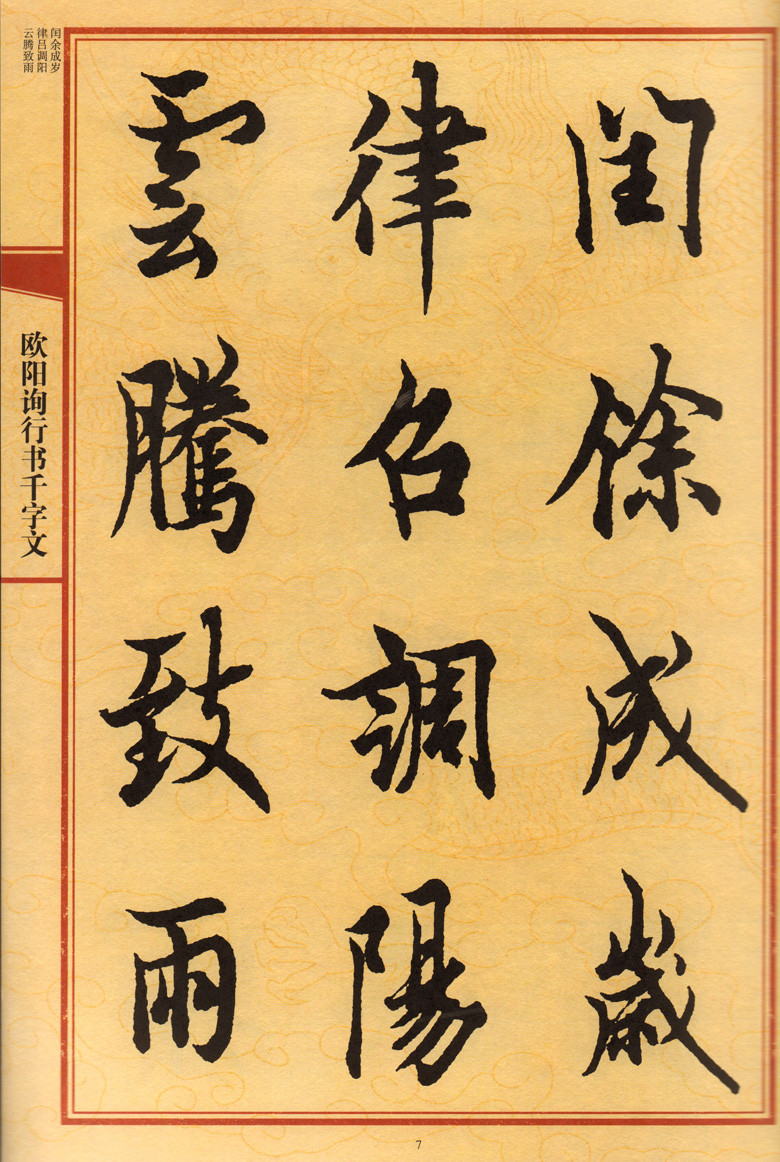 闰余成岁
律吕调阳
云腾致雨
閏餘成歲
律召調陽
雲騰致雨
欧阳询行书千字文
7